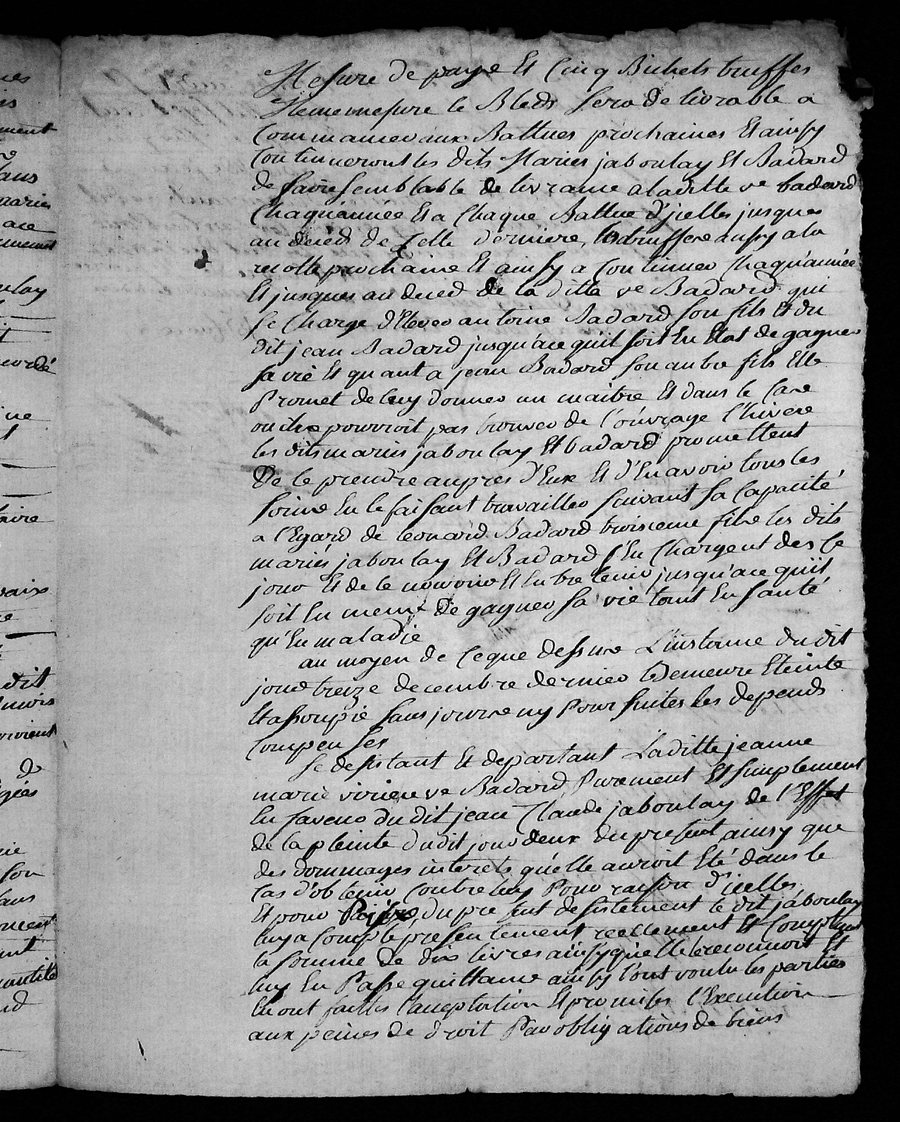 Mesure de paÿs Et Cinq Bichets truffes
Meme mesure le Bleds Sera de livrable a
Commancer aux Battues prochaines Et ainsy
Continueront les dits Mariés jaboulay Et Badard
de faire Semblable de livrance a ladille ve badard
Chaqu'année Et a Chaque Battue d'jcelles jusques
au deced de Celle derniere, les truffes aussy a la
recolte prochaine Et ainsy a Continuer Chaqu'année
Et jusques au deced de la ditte ve Badard qui
Se Charge d'Elever antoine Badard Son fils Et du
dit jean Badard jusqu'ace quil Soit En Etat de gagner
Sa vie Et quant a jean Badard Son autre fils Elle
Promet de luy donner un maitre Et dans le Cas
ou il ne pourroit pas trouver de l'ouvrage l'hivere
les dits mariés jaboulay Et badard promettent
De le prendre aupres d'Eux Et d'En avoir tous les
Soins En le faisant travailler Suivant Sa Capacité
a l'Egard de leonard Badard troisieme fils les dits
mariés jaboulay Et Badard S'En Chargent des Ce
jour Et de le nourrir Et Entretenir jusqu'ace quil
Soit En meme de gagner Sa vie tant En Santé
qu'En maladie
au moyen de Ceque dessus L'instance du dit
jour treize decembre dernier Demeure Eteinte
Et assoupie Sans jcourse ny Pour Suites les depends
Compensés
Se desistant Et departant Laditte jeanne
marie vivien ve Badard Purement Et Simplement
En faveur du dit jean Claude jaboulay de l'Effet
de la pleinte du dit jour deux du present ainsy que
des dommages interets qu'elle auroit Eté dans le
Cas d'obtenir Contre luy Pour raison d'icelles,
Et pour du present desistement le dit jaboulay
luy a Compté presentement reellement Et Comptant
la Somme de dix livres ainsy quelle le reconnoit Et
luy En Passe quittance ainsy l'ont voulu les parties
En ont faittes l'acceptation Et promises l'Execution
aux peines de droit Par obligations de biens